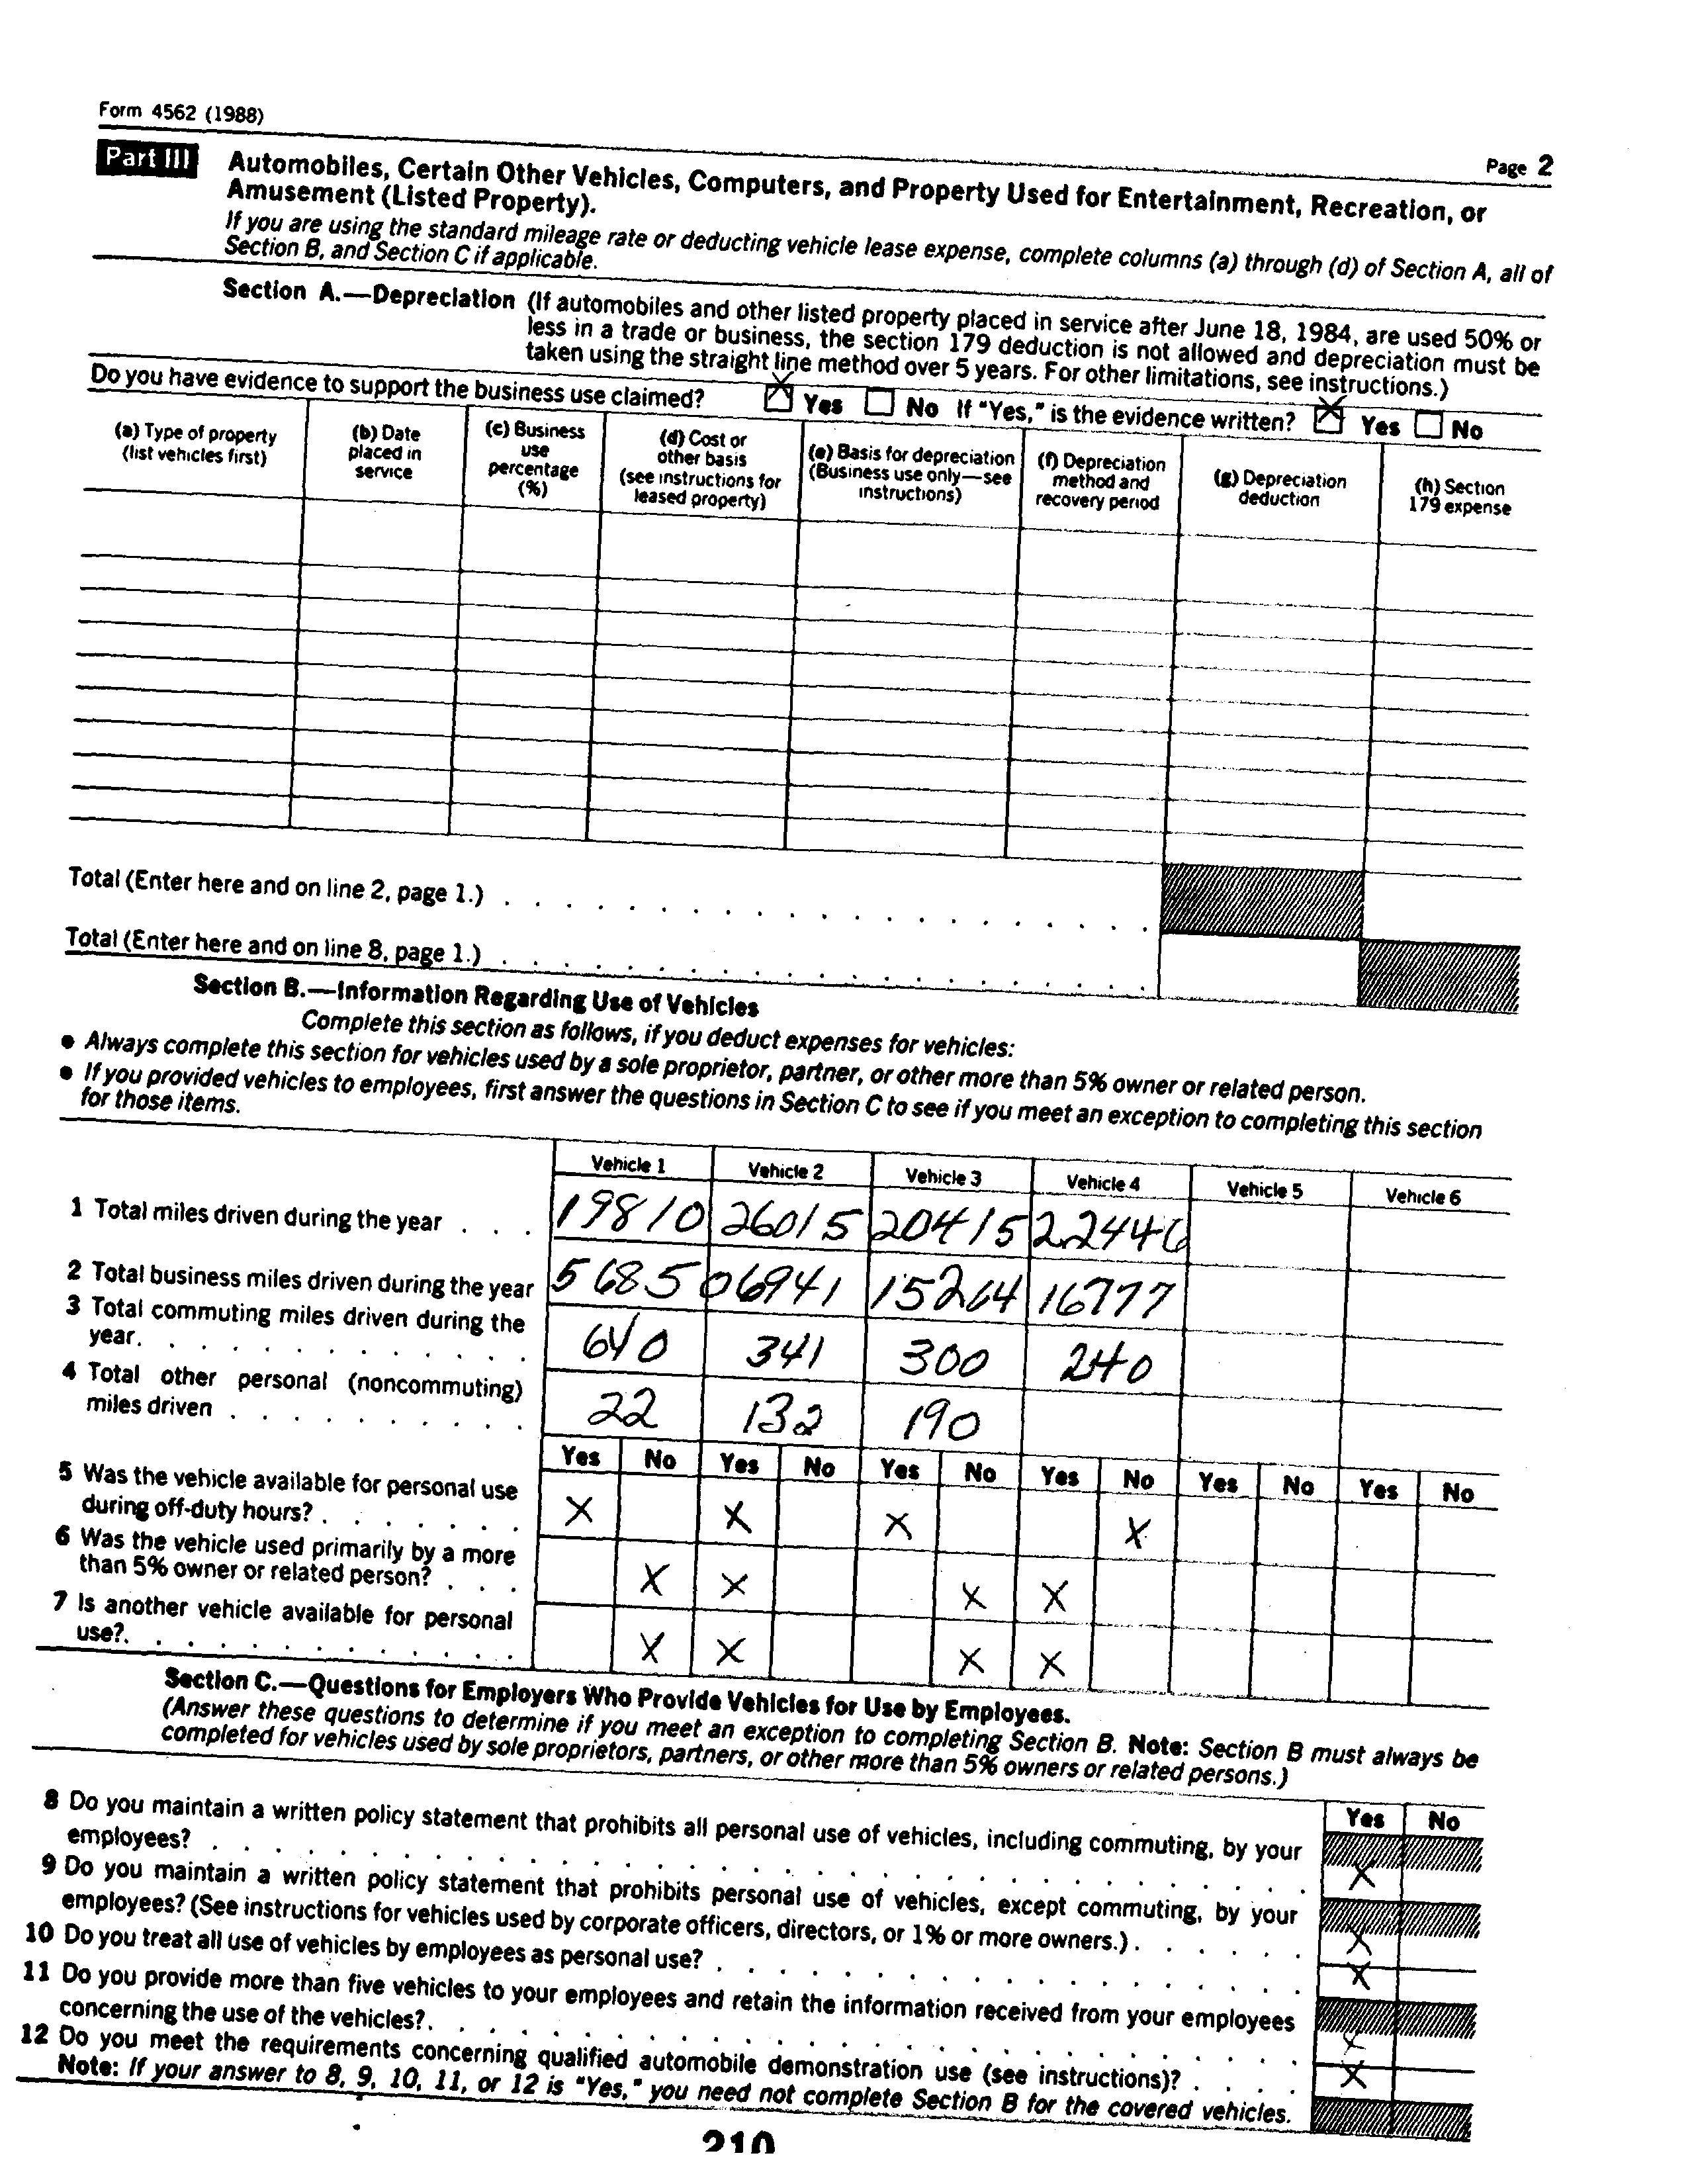 Form 4562 (1988)
Page 2
Part III Automobiles, Certain Other Vehicles, Computers, and Property Used for Entertainment, Recreation, or
Amusement (Listed Property).
If you are using the standard mileage rate or deducting vehicle lease expense, complete columns (a) through (d) of Section A, all of
Section B, and Section C if applicable.
Section A.—Depreciation (If automobiles and other listed property placed in service after June 18, 1984, are used 50% or
less in a trade or business, the section 179 deduction is not allowed and depreciation must be
taken using the straight line method over 5 years. For other limitations, see instructions.)
Do you have evidence to support the business use claimed? X Yes No If "Yes," is the evidence written? X Yes No
(a) Type of property
(list vehicles first)
(b) Date
placed in
service
(c) Business
use
percentage
(%)
(d) Cost or
other basis
(see instructions for
leased property)
(e) Basis for depreciation
(Business use only—see
instructions)
(f) Depreciation
method and
recovery period
(g) Depreciation
deduction
(h) Section
179 expense
Total (Enter here and on line 2, page 1.)
Total (Enter here and on line 8, page 1.)
Section B.—Information Regarding Use of Vehicles
Complete this section as follows, if you deduct expenses for vehicles:
● Always complete this section for vehicles used by a sole proprietor, partner, or other more than 5% owner or related person.
● If you provided vehicles to employees, first answer the questions in Section C to see if you meet an exception to completing this section
for those items.
Vehicle 1 Vehicle 2 Vehicle 3 Vehicle 4 Vehicle 5 Vehicle 6
1 Total miles driven during the year . . . 19810 26015 20415 22446
2 Total business miles driven during the year 5685 06941 15264 16777
3 Total commuting miles driven during the
year. . . . . . . . . . . . . 640 341 300 240
4 Total other personal (noncommuting)
miles driven . . . . . . . . . . 22 132 190
Yes No Yes No Yes No Yes No Yes No Yes No
5 Was the vehicle available for personal use
during off-duty hours? . . . . . . . X X X X
6 Was the vehicle used primarily by a more
than 5% owner or related person? . . . X X X X
7 Is another vehicle available for personal
use?. . . . . . . . . . . . . X X X X
Section C.—Questions for Employers Who Provide Vehicles for Use by Employees.
(Answer these questions to determine if you meet an exception to completing Section B. Note: Section B must always be
completed for vehicles used by sole proprietors, partners, or other more than 5% owners or related persons.)
Yes No
8 Do you maintain a written policy statement that prohibits all personal use of vehicles, including commuting, by your
employees? X
9 Do you maintain a written policy statement that prohibits personal use of vehicles, except commuting, by your
employees? (See instructions for vehicles used by corporate officers, directors, or 1% or more owners.) . . . . . . X
10 Do you treat all use of vehicles by employees as personal use? X
11 Do you provide more than five vehicles to your employees and retain the information received from your employees
concerning the use of the vehicles?. X
12 Do you meet the requirements concerning qualified automobile demonstration use (see instructions)? . . . . X
Note: If your answer to 8, 9, 10, 11, or 12 is "Yes," you need not complete Section B for the covered vehicles.
210